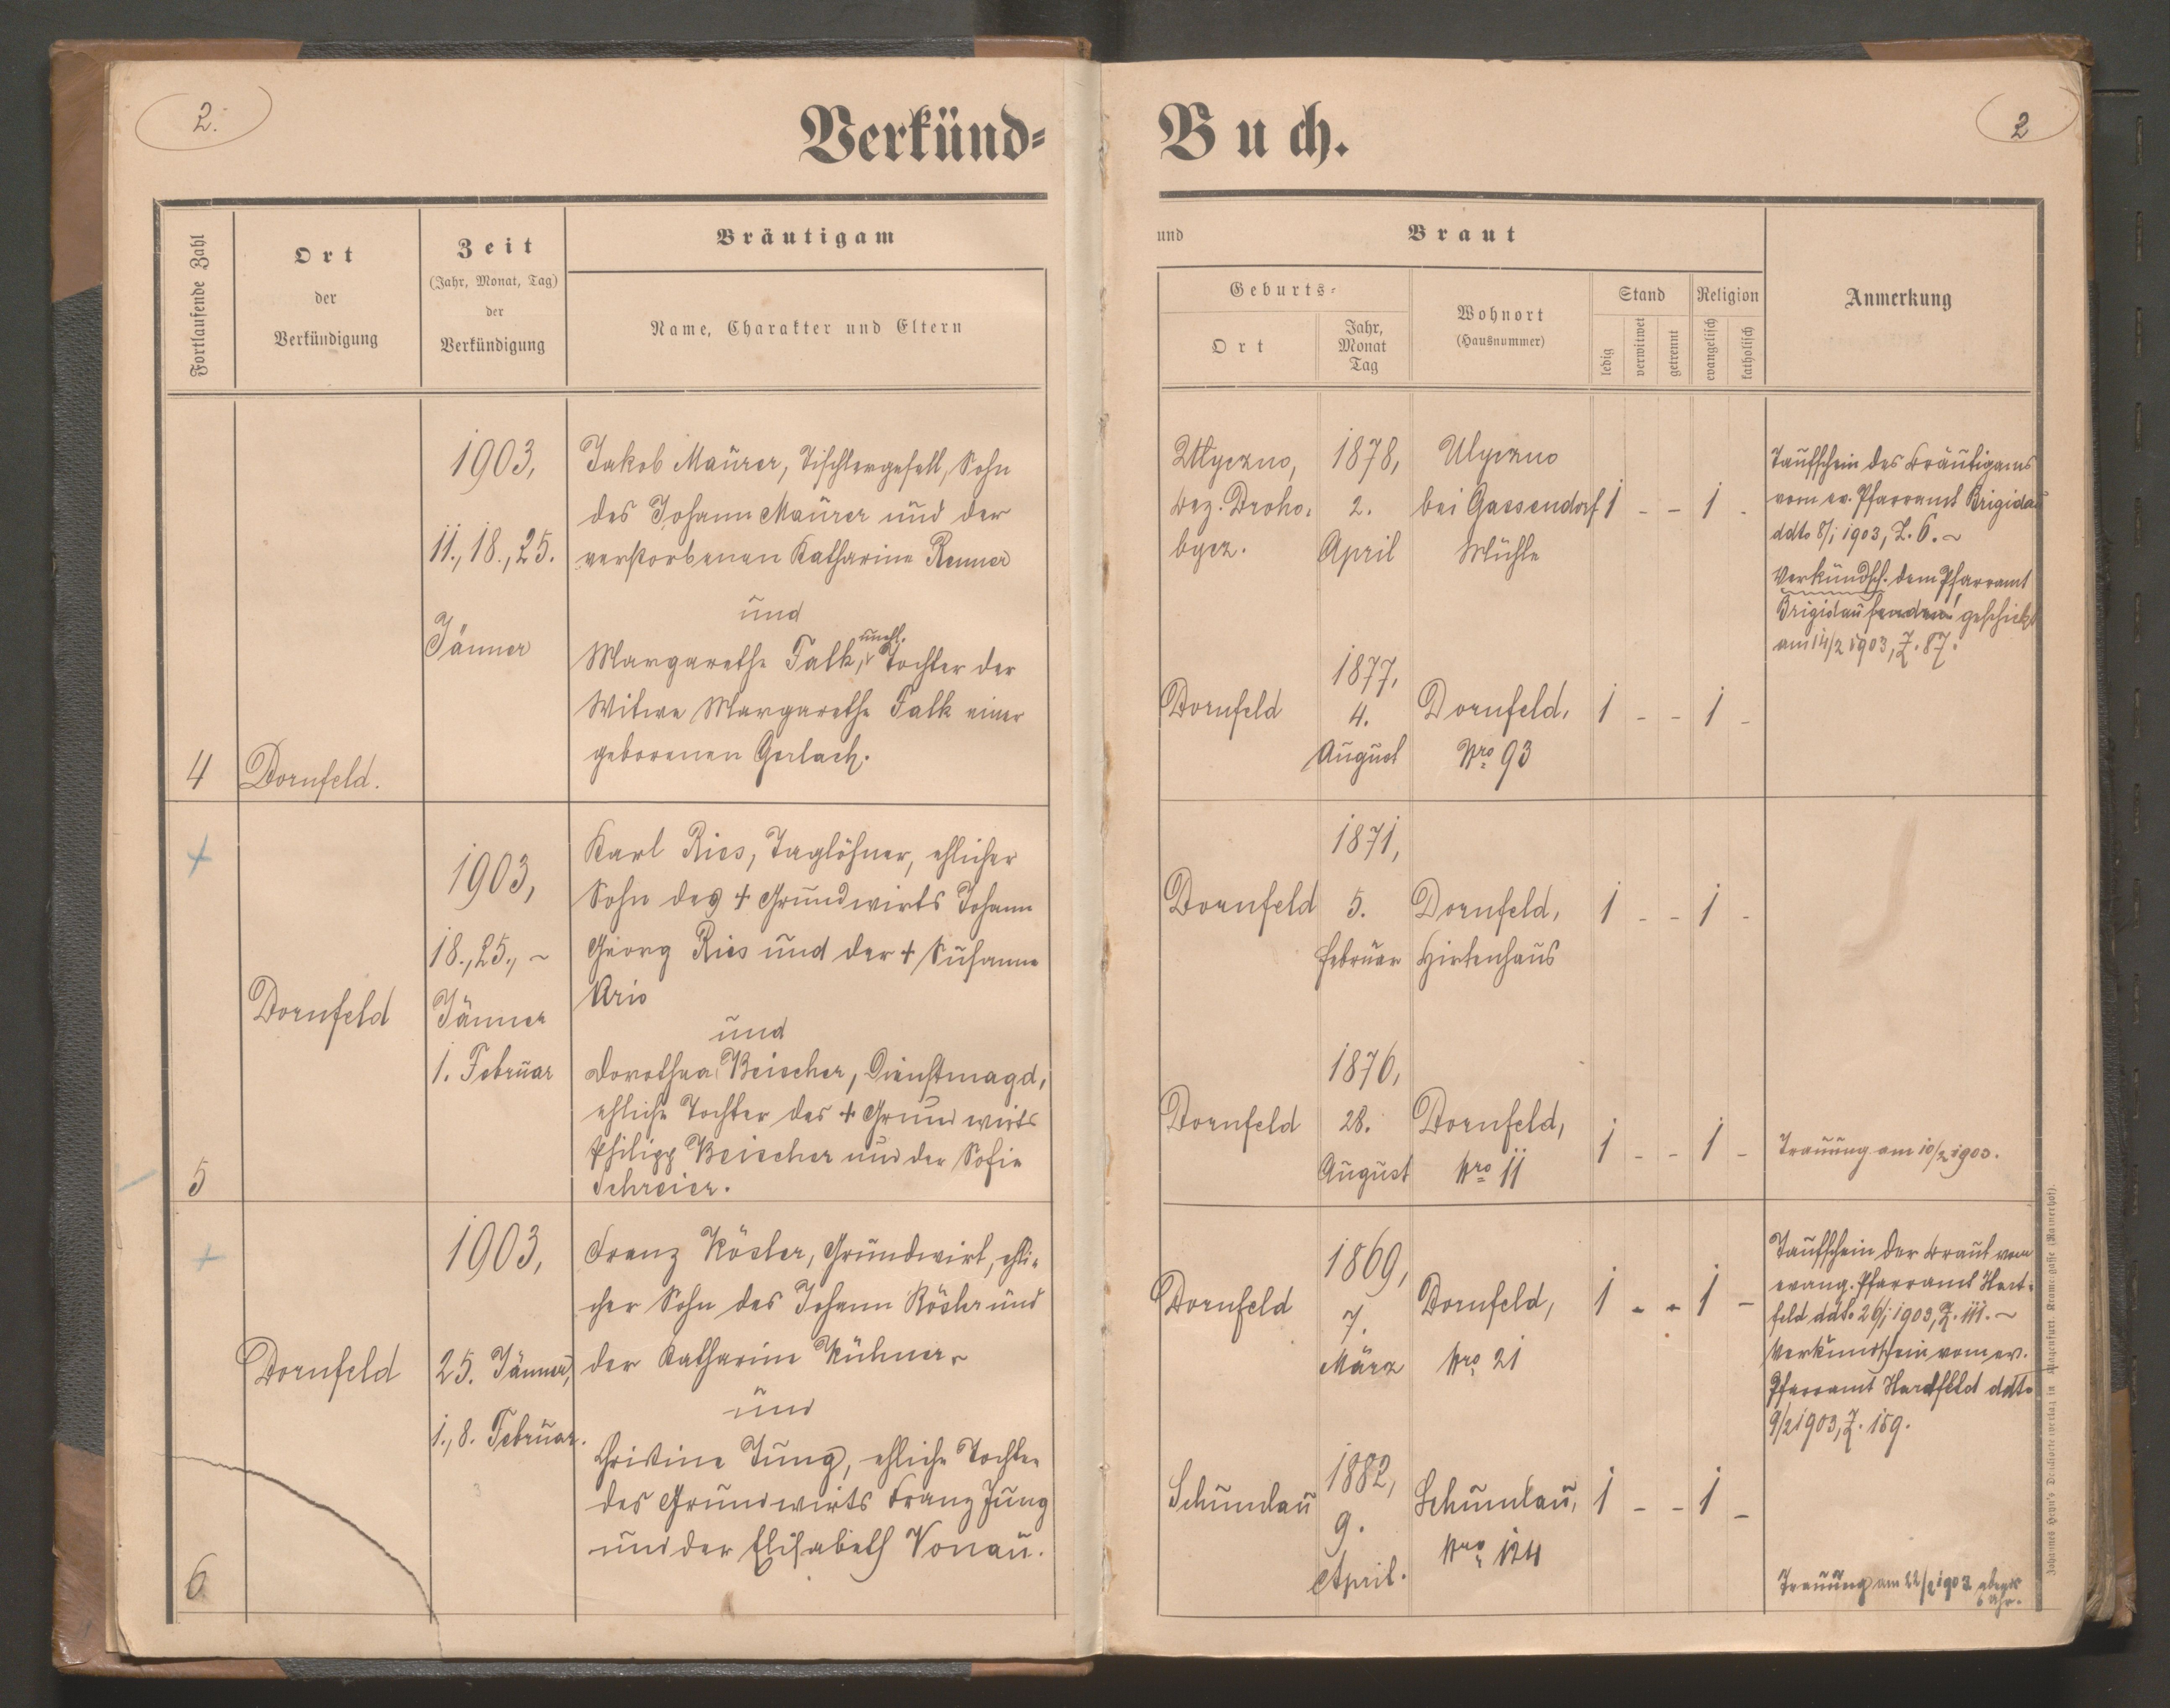 2.
Verkünd=
Fortlaufende Zahl
Ort
der
Verkündigung
Zeit
(Jahr, Monat, Tag)
der
Verkündigung
Bräutigam
Name, Charakter und Eltern
4
Dornfeld.
1903,
11., 18., 25.
Jänner
Jakob Maurer, Tischlergesell, Sohn
des Johann Maurer und der
verstorbenen Katharina Renner
und
unehl.
Margarethe Falk, Tochter der
Witwe Margarethe Falk einer
geborenen Gerlach.
5
Dornfeld
1903,
18., 25., ~
Jänner
1. Februar
Karl Ries, Taglöhner, ehlicher
Sohn des + Grundwirts Johann
Georg Ries und der + Susanna
und
Dorothea Beischer, Dienstmagd,
ehliche Tochter des + Grundwirts
Philipp Beischer und der Sofie
Schreier.
6
Dornfeld
1903,
25. Jänner,
1., 8. Februar.
Franz Kösler, Grundwirt, ehli-
cher Sohn des Johann Kösler und
der Katharina Kühner
und
Christine Jung, ehliche Tochter
des Grundwirts Franz Jung
und der Elisabeth Vonau.
2
Buch.
und
Braut
Geburts=
Ort
Jahr,
Monat
Tag
Wohnort
(Hausnummer)
Stand
ledig
verwitwet
getrennt
Religion
evangelisch
katholisch
Anmerkung
Ulyczno,
Bez. Droho-
bycz.
1878,
2.
April
Ulyczno
bei Gassendorf
Mühle
1 - - 1 -
Taufschein des Bräutigams
vom ev. Pfarramt Brigidau
ddto 8/1 1903, Z. 6. ~
Verkündsch. dem Pfarramt
Brigidau senden! geschickt
am 14/2 1903, Z. 87.
Dornfeld
1877,
4.
August
Dornfeld,
Nro 93
1 - - 1 -
Dornfeld
1871,
5.
Februar
Dornfeld,
Hirtenhaus
1 - - 1 -
Dornfeld
1876,
28.
August
Dornfeld,
Nro 11
1 - - 1 -
Trauung am 10/2 1903.
Dornfeld
1869,
7.
März
Dornfeld,
Nro 21
1 - - 1 -
Taufschein der Braut vom
evang. Pfarramt Hart-
feld ddto 26/1 1903, Z. 111. ~
Verkündschein vom ev.
Pfarramt Hardfeld ddto
9/2 1903, Z. 159.
Schumlau
1882,
9.
April.
Schumlau,
Nro 124
1 - - 1 -
Trauung am 22/2 1903 abends
6 Uhr.
Johannes Heyn's Dezidorteverlag in Klagenfurt, Kramergasse (Rainerhof).